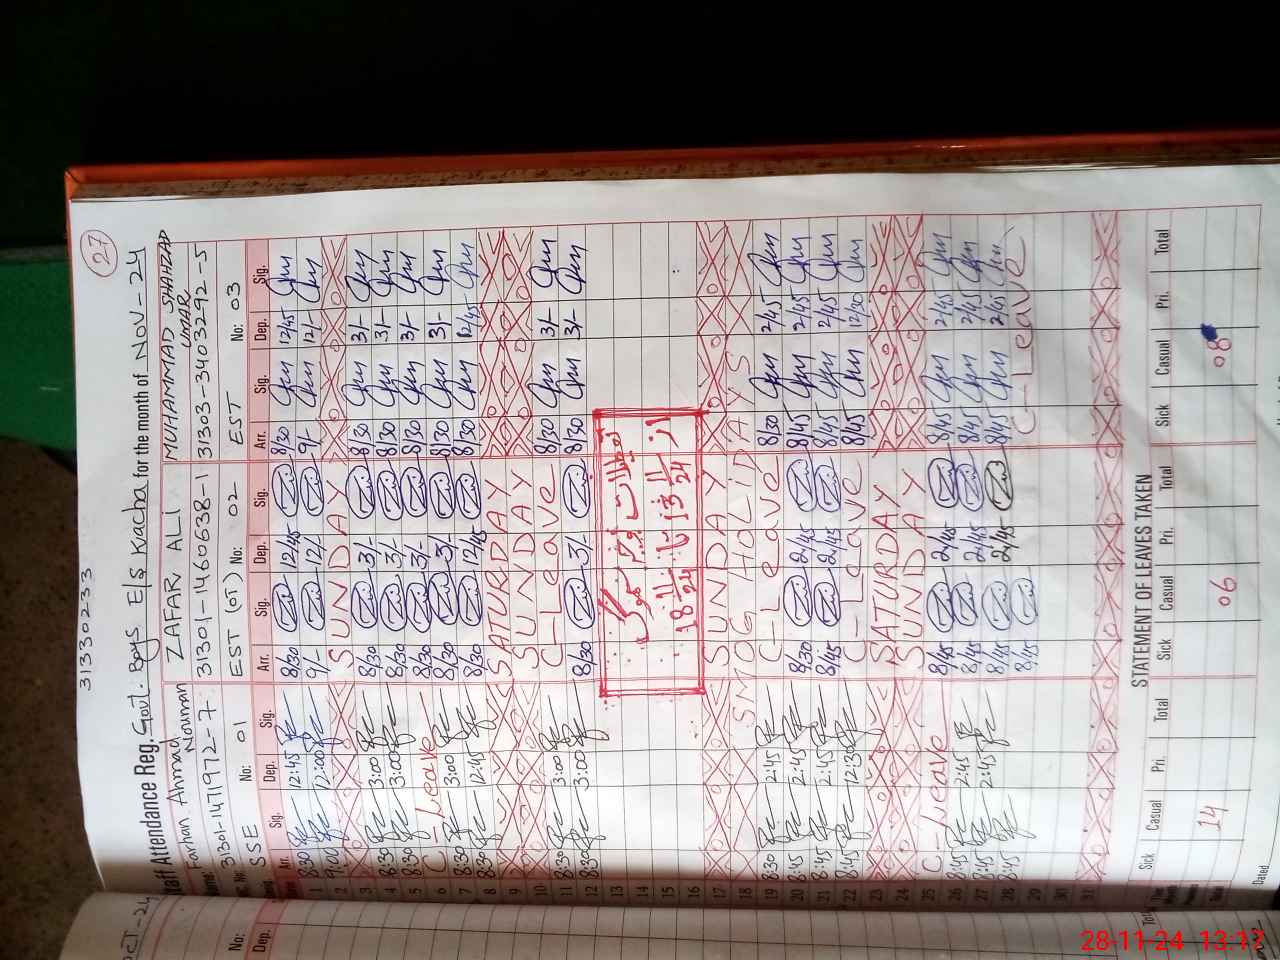 31330233
27
Staff Attendance Reg. Govt. Boys E/s Kacha for the month of NOV-24
Farhan Ahmad Nouman ZAFAR ALI MUHAMMAD SHAHZAD UMAR
31301-1471972-7 31301-1460638-1 31303-3403292-5
SSE No: 01 EST (OT) No: 02 EST No: 03
Arr. Sig. Dep. Sig. Arr. Sig. Dep. Sig. Arr. Sig. Dep. Sig.
1 8:30 12:45 8/30 12/45 8/30 12/45
2 9:00 12:00 9/- 12/- 9/- 12/-
3 SUNDAY
4 8:30 3:00 8/30 3/- 8/30 3/-
5 8:30 3:00 8/30 3/- 8/30 3/-
6 C-Leave 8/30 3/- 8/30 3/-
7 8:30 3:00 8/30 3/- 8/30 3/-
8 8:30 12:45 8/30 12/45 8/30 12/45
9 SATURDAY
10 SUNDAY
11 8:30 3:00 C-Leave 8/30 3/-
12 8:30 3:00 8/30 3/- 8/30 3/-
13
14
15
16
17 SUNDAY
18 SMOG HOLIDAYS
19 8:30 2:45 C-Leave 8/30 2/45
20 8:45 2:45 8/30 2/45 8/45 2/45
21 8:45 2:45 8/45 2/45 8/45 2/45
22 8:45 12:30 C-Leave 8/45 12/30
23 SATURDAY
24 SUNDAY
25 C-Leave 8/45 2/45 8/45 2/45
26 8:45 2:45 8/45 2/45 8/45 2/45
27 8:45 2:45 8/45 2/45 8/45 2/45
28 8:45 8/45 C-Leave
29
30
31
STATEMENT OF LEAVES TAKEN
Sick Casual Pri. Total Sick Casual Pri. Total Sick Casual Pri. Total
14 06 08
Dated
28-11-24 13:17